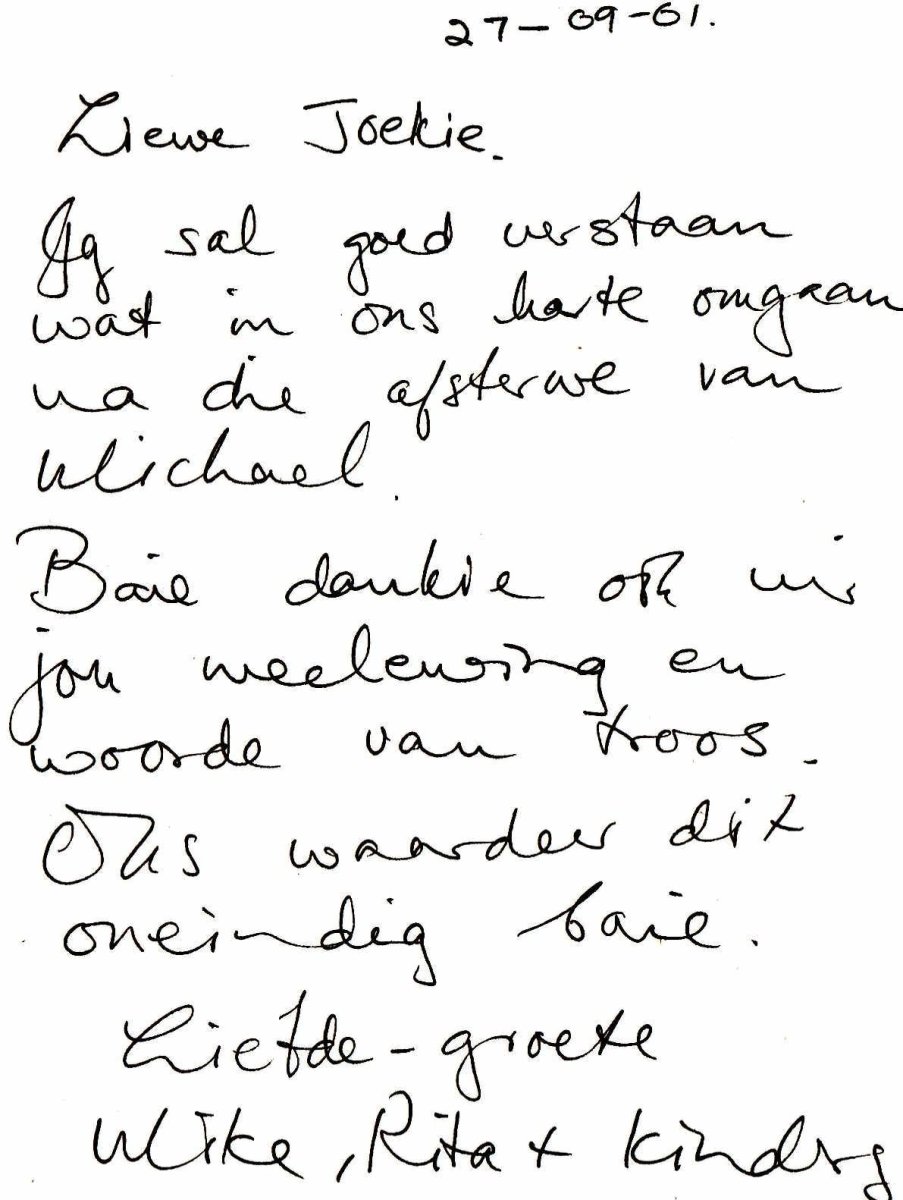 27-09-01.
Liewe Joekie.
Jy sal goed verstaan
wat in ons harte omgaan
na die afsterwe van
Michael.
Baie dankie ook vir
jou meelewing en
woorde van troos.
Ons waardeer dit
oneindig baie.
Liefde-groete
Mike, Rita + kinders